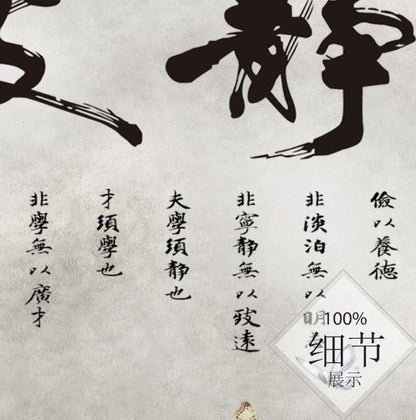 靜
儉以養德
非淡泊無以明
非寧靜無以致遠
夫學須靜也
才須學也
非學無以廣才
100%
细节
展示